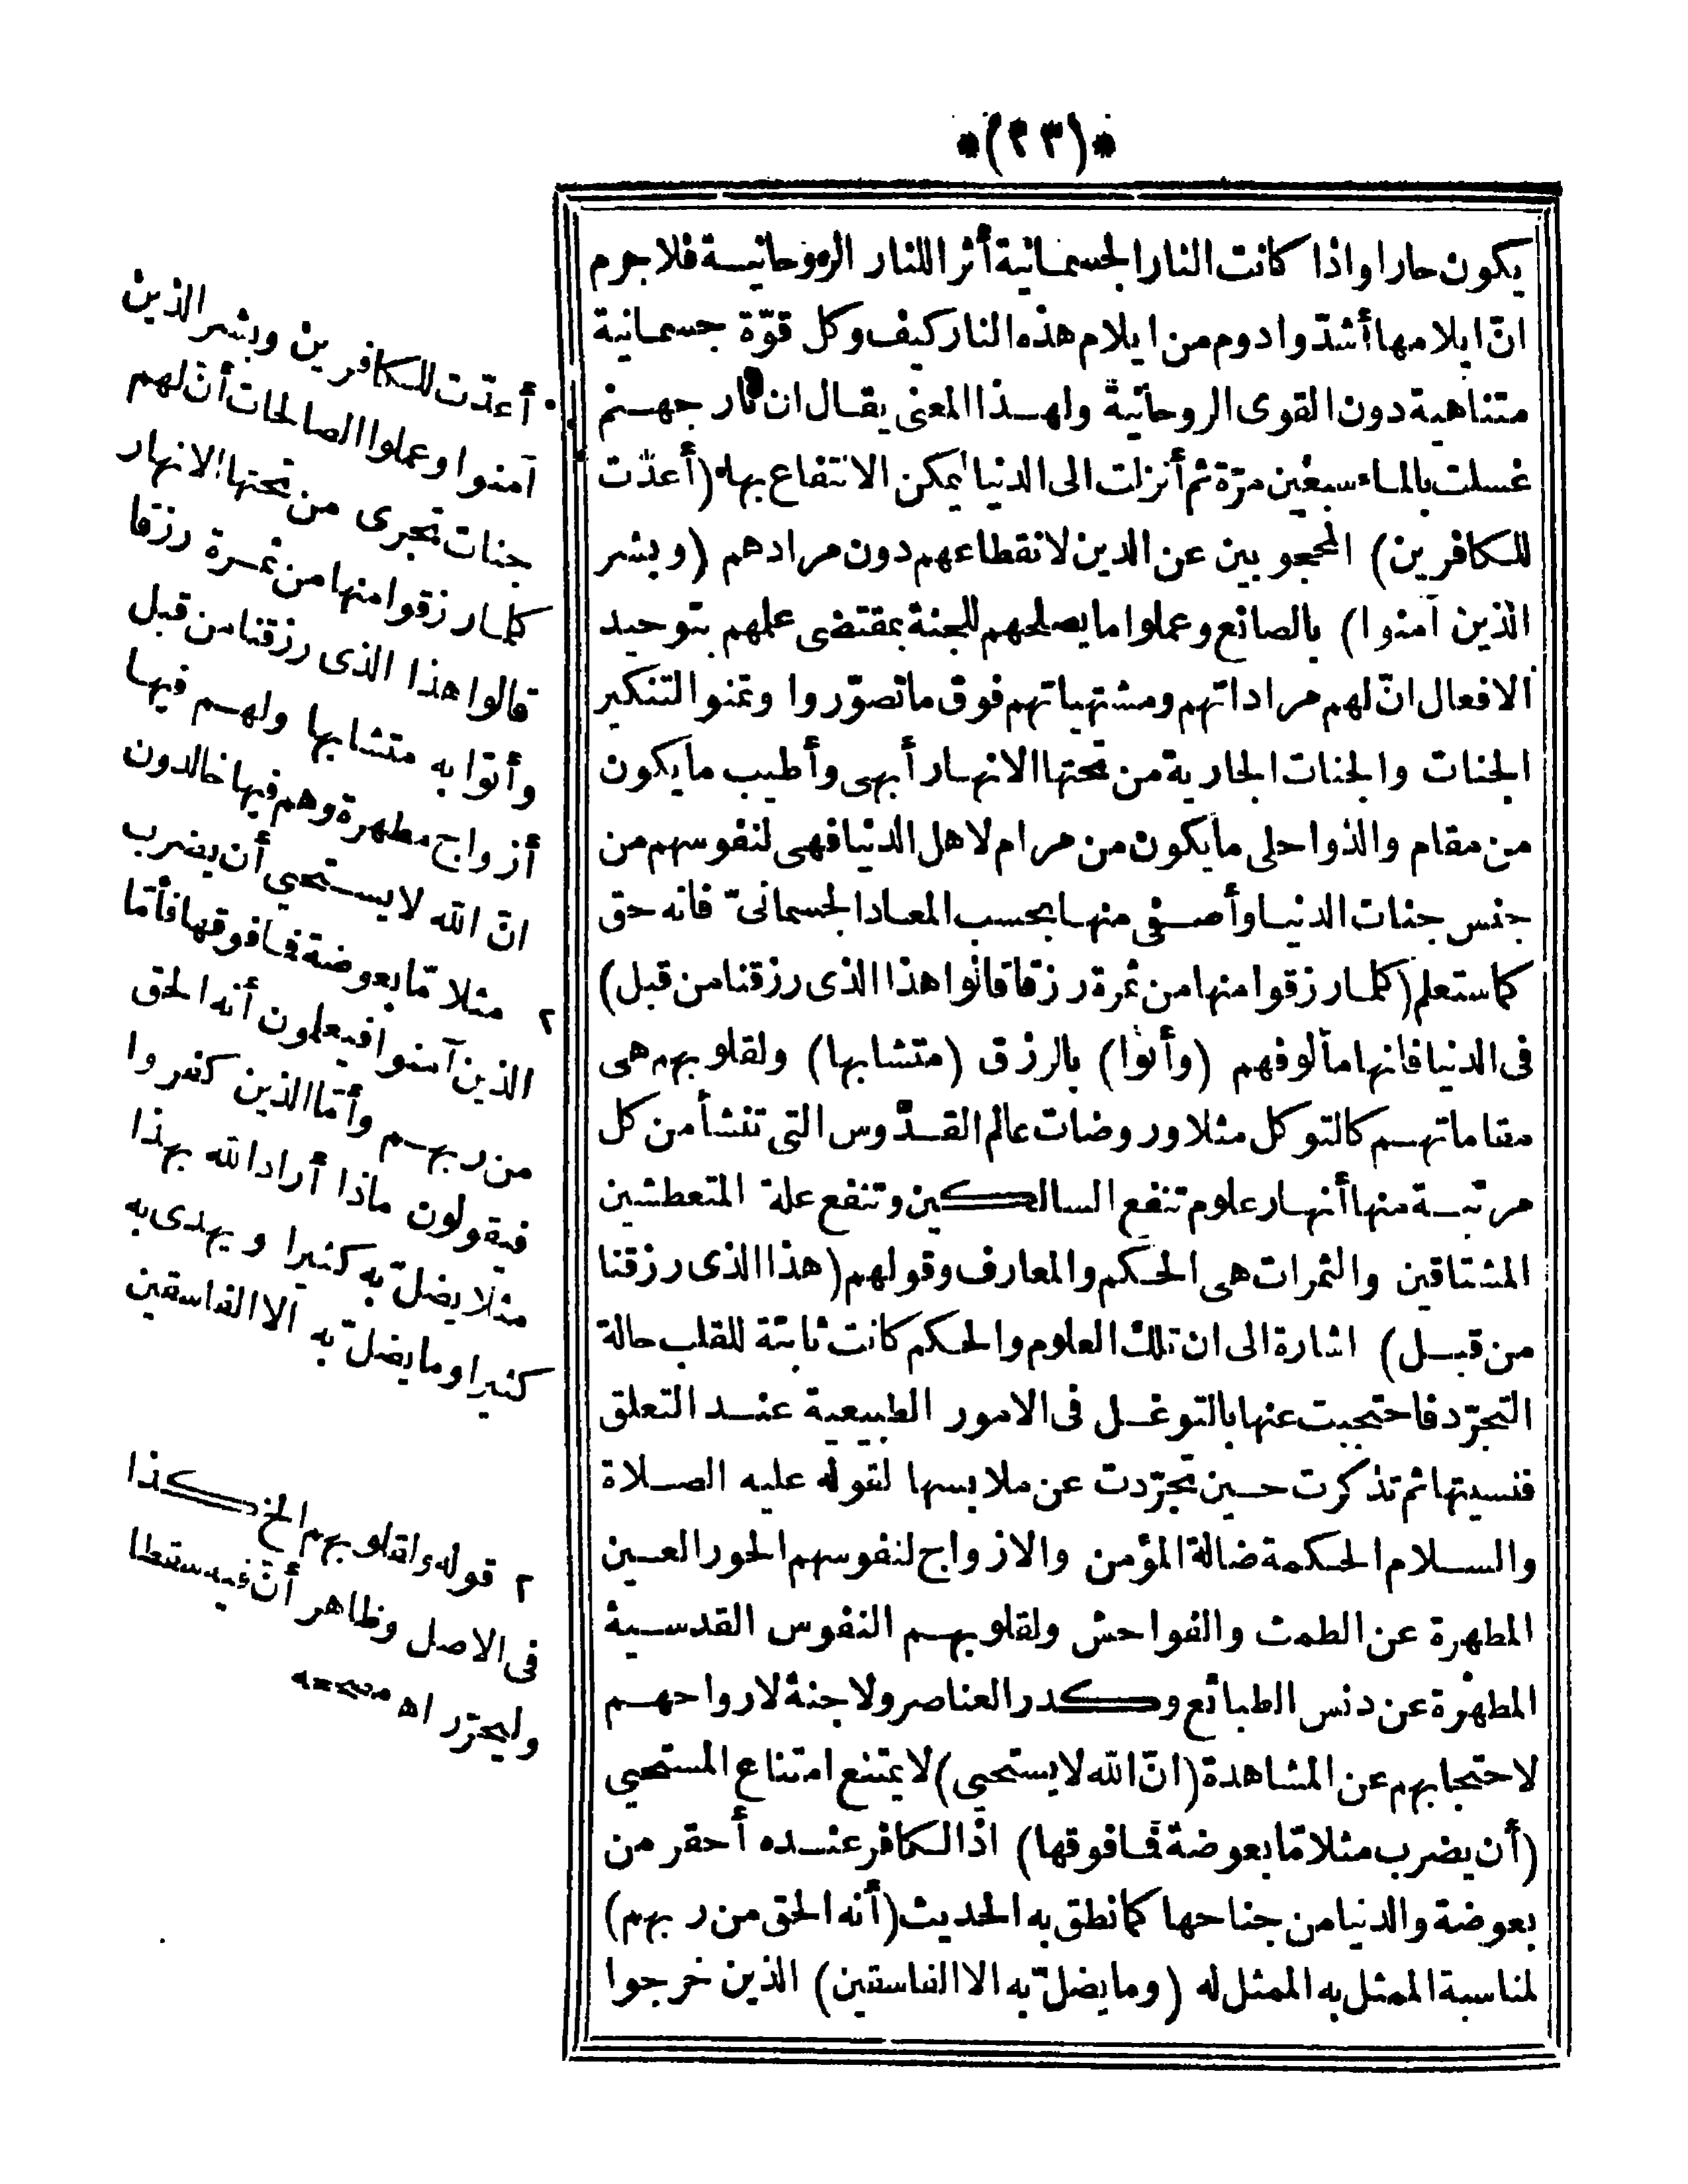 *(٢٣)*
يكون حارا واذا كانت النار الجسمانية أثرا للنار الروحانيـة فلا جرم
انّ ايلامها أشدّ وادوم من ايلام هذه النار كيف وكل قوّة جسمانية
متناهية دون القوى الروحانية ولهـذا المعنى يقـال ان نار جهـنم
غسلت بالماء سبعين مرّة ثم أنزلت الى الدنيا يمكن الانتفاع بها (أعدّت
للكافرين) المحجوبين عن الدين لانقطاعهم دون مرادهم (وبشر
الذين آمنوا) بالصانع وعملوا ما يصلحهم للجنة بمقتضى علمهم بتوحيد
الافعال انّ لهم مراداتهم ومشتهياتهم فوق ما تصوّروا وتمنوا لتنكير
الجنات والجنات الجارية من تحتها الانهـار أبهى وأطيب ما يكون
من مقام والذوا حلى ما يكون من مرام لاهل الدنيا فهى لنفوسهم من
جنس جنات الدنيـا وأصـفى منهـا بحسب المعـاد الجسمانىّ فانه حق
كما ستعلم (كلمـا رزقوا منها من ثمرة رزقا قالوا هذا الذى رزقنا من قبل)
فى الدنيا فانها مألوفهم (وأتوا) بالرزق (متشابها) ولقلوبهم هى
مقاماتهـم كالتوكل مثلا وروضات عالم القـدّوس التى تنشأ من كل
مرتبـة منها أنهـار علوم تنفع السالكين وتنفع علة المتعطشين
المشتاقين والثمرات هى الحـكم والمعارف وقولهم (هذا الذى رزقنا
من قبـل) اشارة الى ان تلك العلوم والحـكم كانت ثابتة للقلب حالة
التجرّد فاحتجبت عنها بالتوغـل فى الامور الطبيعية عنـد التعلق
فنسيتها ثم تذكرت حـين تجرّدت عن ملابسها لقوله عليه الصـلاة
والسـلام الحـكمة ضالة المؤمن والازواج لنفوسهم الحور العـين
المطهرة عن الطمث والفواحش ولقلوبهـم النفوس القدسـية
المطهرة عن دنس الطبائع وكدر العناصر ولا جنة لارواحهـم
لاحتجابهم عن المشاهدة (انّ الله لا يستحيى) لا يمتنع امتناع المستحيى
(أن يضرب مثلا مّا بعوضة فـا فوقها) اذ الـكافر عنـده أحقر من
بعوضة والدنيا من جناحها كما نطق به الحديث (أنه الحق من ربهم)
لمناسبة الممثل به الممثل له (وما يضلّ به الا الفاسقين) الذين خرجوا
أعدّت للـكافرين وبشر الذين
آمنوا وعملوا الصالحات أنّ لهم
جنات تجرى من تحتها الانهار
كلمـا رزقوا منها من ثمـرة رزقا
قالوا هذا الذى رزقنا من قبل
وأتوا به متشابها ولهـم فيهـا
أزواج مطهرة وهم فيها خالدون
انّ الله لا يسـتحيي أن يضرب
مثلا مّا بعوضة فـا فوقها فأمّا
الذين آمنوا فيعلمون أنه الحق
من ربهـم وأمّا الذين كفروا
فيقولون ماذا أراد الله بهذا
مثلا يضلّ به كثيرا ويهدى به
كثيرا وما يضلّ به الا الفاسقين
٢ قوله ولقلوبهم الخ كـذا
فى الاصل وظاهر أنّ فيه سقطا
وليحرّر اه مصححه